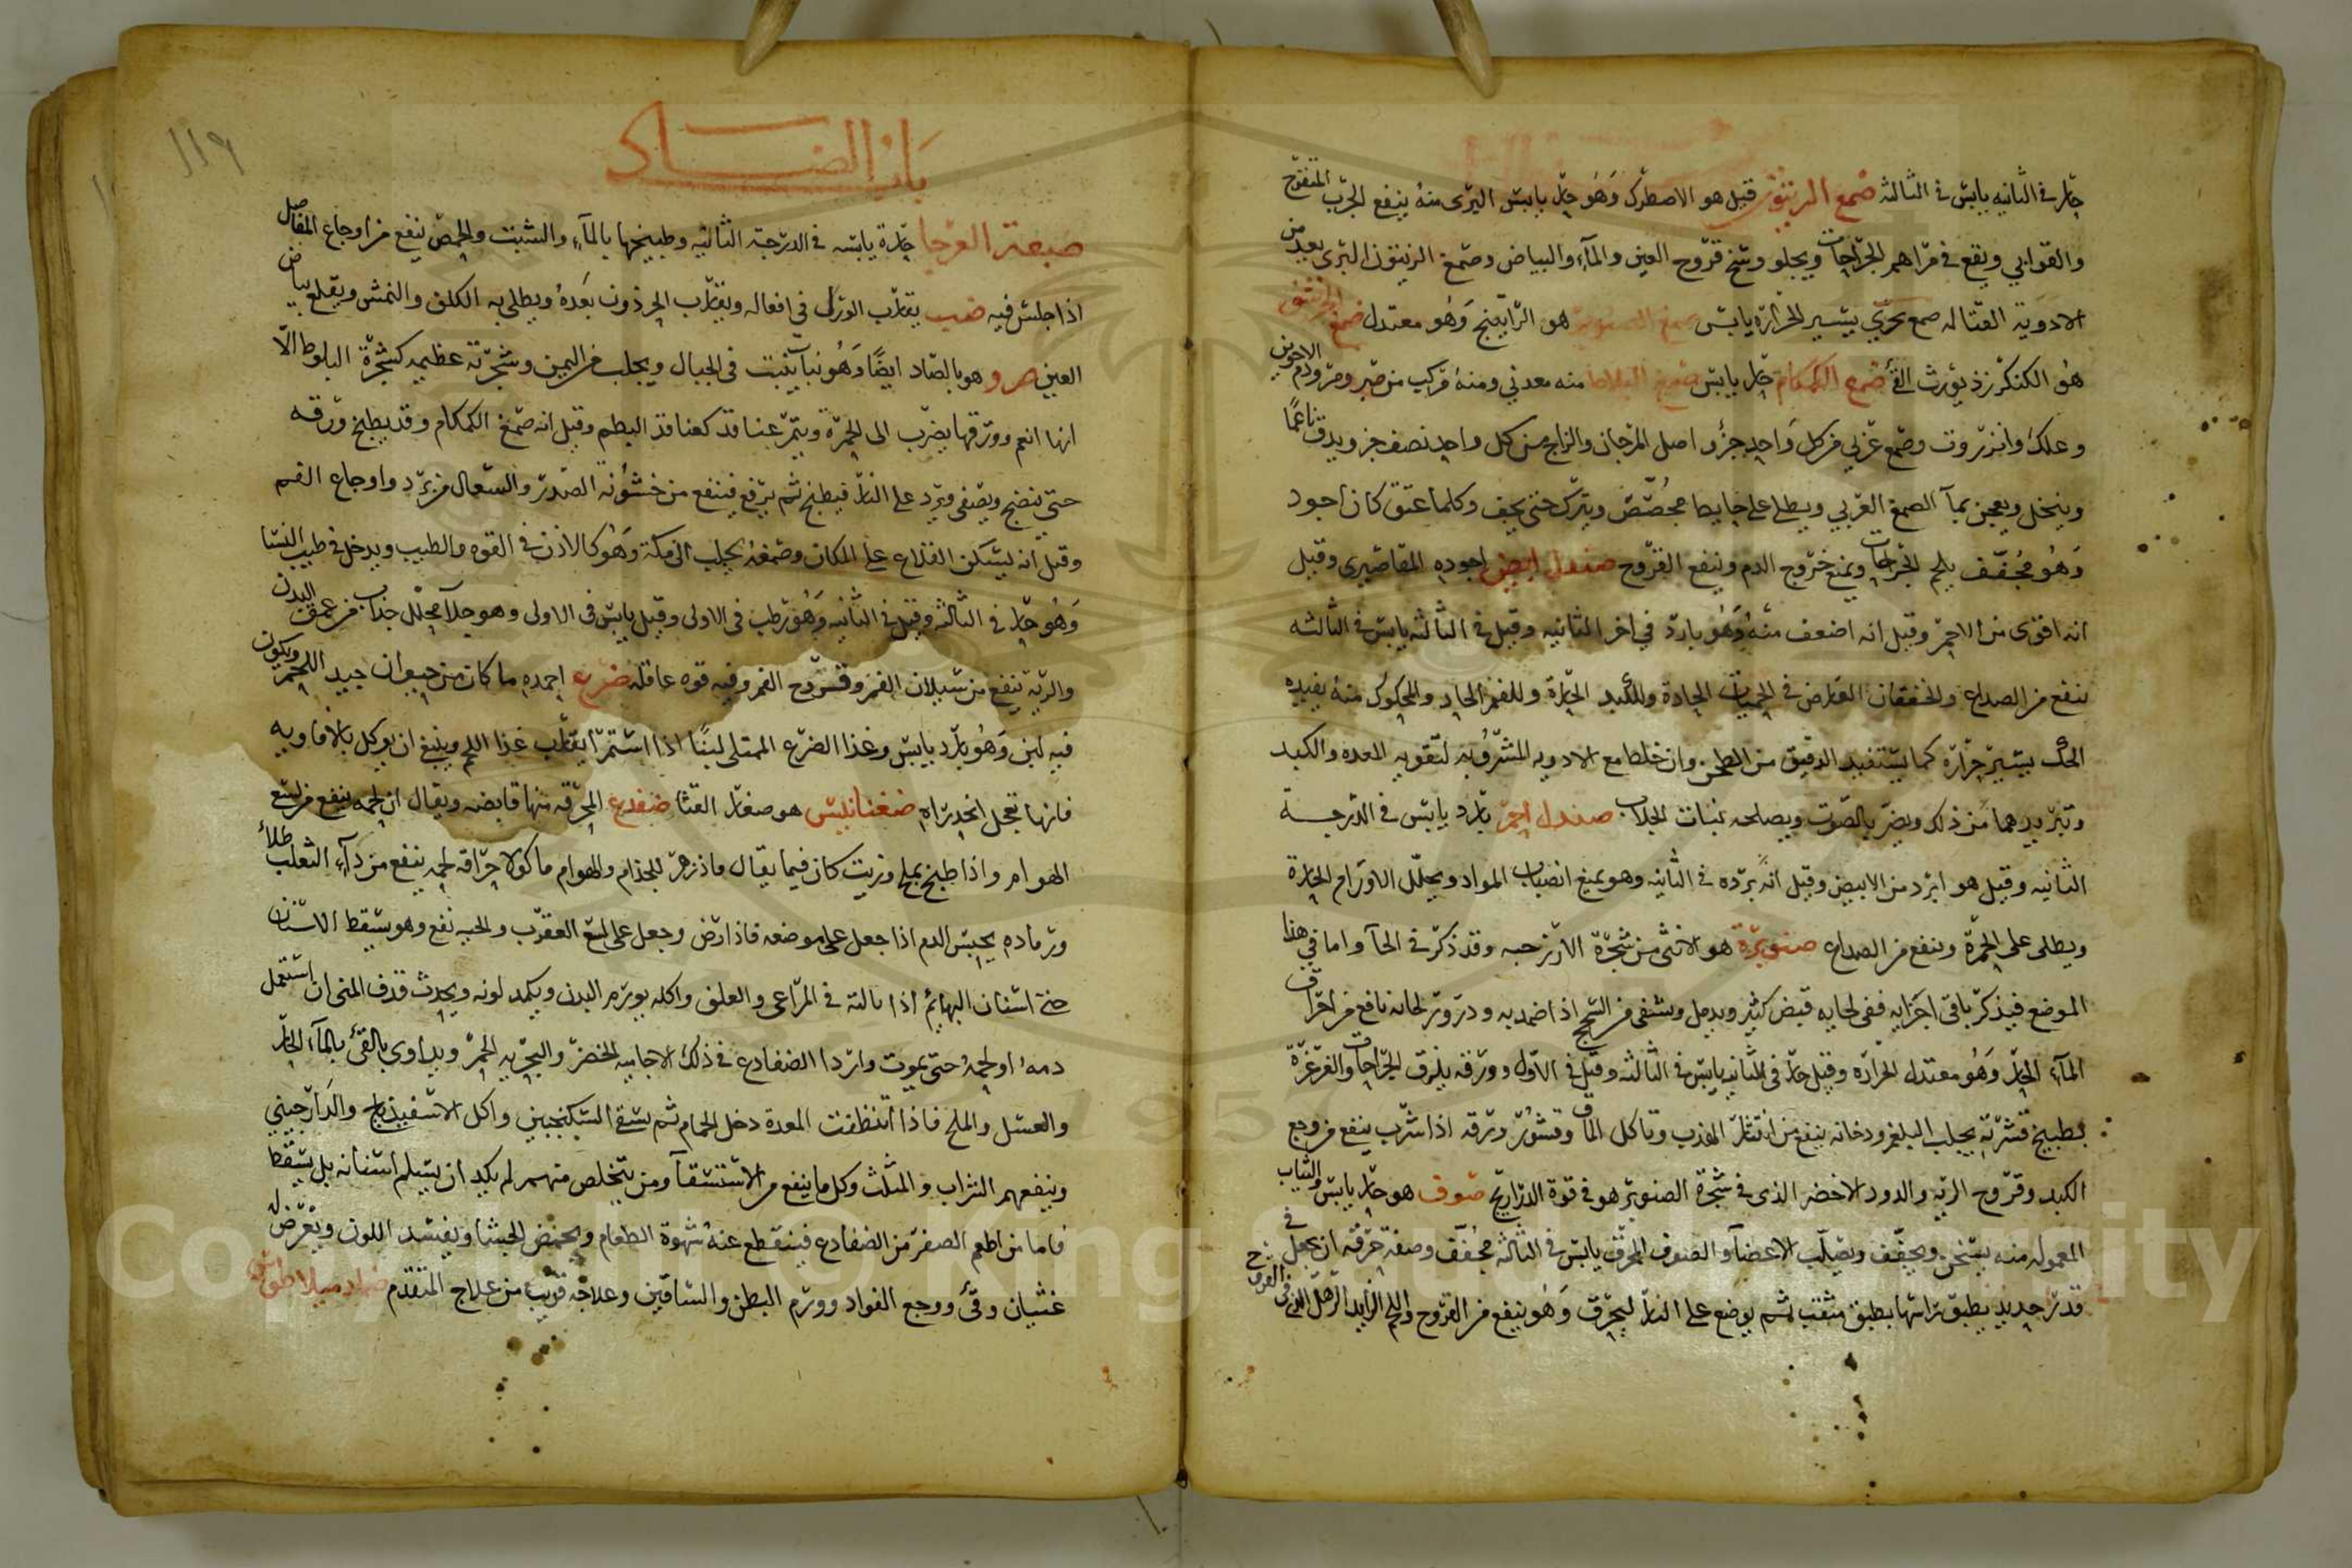 حار فى الثانيه يابس فى الثالثه صمع الزيتون قيل هو الاصطرك وهو حار يابس البرى منه ينفع الجرب المتقرح
والقوابي ويقع في مراهم الجراحات ويجلو وسخ قروح العين والمآء والبياض وصمغ الزيتون البرى يعد من
الادوية القتاله صمع بحرّي يسير الحرارة يابس صمغ الصنوبر هو الراتينج وهو معتدل صمغ الحرشف
هو الكنكرزد يورث القئ صمع الكمكام حار يابس صمغ البلاط منه معدني ومنه مركب من صبر ومر ودم الاخوين
وعلك وانزروت وصمع عربي من كل واحد جزؤ اصل المرجان والزاج من كل واحد نصف جز ويدق ناعمًا
وينخل ويعجن بمآ الصمغ العربي ويطلى على حايط مجصّص ويترك حتى يجف وكلما عتق كان اجود
وهو مجفّف يلحم الجراحات ويمنع خروج الدم وينفع القروح صندل ابيض اجوده المقاصيرى وقيل
انه اقوى من الاحمر وقيل انه اضعف منه وهو بارد في اخر الثانيه وقيل في الثالثه يابس في الثالثه
ينفع من الصداع والخفقان العارض في الحميات الحادة وللكبد الحارة وللفم الحار والمحكوك منه يفيده
الحك يسير حرارة كما يستفيد الدقيق من الطحن وان خلط مع الادويه المشروبه لتقويه المعده والكبد
وتبريدهما من ذلك ويضر بالصوت ويصلحه نبات الجلاب صندل احمر بارد يابس في الدرجة
الثانيه وقيل هو ابرد من الابيض وقيل انه برده في الثانيه وهو يمنع انصباب المواد ويحلّل الاورام الحارة
ويطلى على الحمرة وينفع من الصداع صنوبرة هو الانثى من شجرة الارز حبه وقد ذكر في الحآ واما في هذا
الموضع فيذكر باقى اجزايه ففى لحايه قبض كثير ويدمل ويشفى من السحج اذا ضمد به وذرور لحائه نافع من احراق
المآء الحار وهو معتدل الحرارة وقيل حار فى الثانيه يابس في الثالثه وقيل في الاول وورقه يلزق الجراحات والغرغرة
بطبيخ قشرته يجلب البلغم ودخانه ينفع من انتثار الهدب وتاكل الماق وقشور ورقه اذا شرب ينفع من وجع
الكبد وقروح الريه والدود الاخضر الذى في شجرة الصنوبر هو في قوة الذراريح صوف هو حار يابس والثياب
المعموله منه يسخن ويجفف ويصلّب الاعضآ والصوف المحرق يابس في الثالثه مجفف وصفة حرقه ان يجعل في
قدر جديد يطبق راسها بطبق مثقب ثم يوضع على النار ليحرق وهو ينفع من القروح واللحم الزايد
باب الضاد
١١٩
ضبعة العرجا حارة يابسه في الدرجة الثانيه وطبيخها بالمآء والشبت والحمص ينفع من اوجاع المفاصل
اذا جلس فيه ضب يقارب الورل في افعاله ويقارب الحرذون بعده ويطلى به الكلف والنمش ويقلع بياض
العين ضرو هو بالصاد ايضًا وهو نبات ينبت في الجبال ويجلب من اليمن وشجرته عظيمه كشجرة البلوط الّا
انها انعم وورقها يضرب الى الحمرة ويثمر عناقد كعناقد البطم وقيل انه صمغ الكمكام وقد يطبخ ورقه
حتى ينضج ويصفى ويرد على النار فيطبخ ثم يرفع فينفع من خشونة الصدر والسعال من برد واوجاع الفم
وقيل انه يسكن القلاع على المكان وصمغه يجلب الى مكة وهو كالاذن في القوه والطيب ويدخل في طيب النسا
وهو حار في الثالثه وقيل في الثانيه وهو رطب في الاولى وقيل يابس في الاولى وهو جلآ محلل جذاب من عمق البدن
والريه ينفع من سيلان الفم وقروح الفم وفيه قوه عاقله ضرع احمده ما كان من حيوان جيد اللحم ويكون
فيه لبن وهو بارد يابس وغذا الضرع الممتلى لبنًا اذا استمر يقارب غذا اللحم وينبغي ان يوكل بالافاويه
فانها تعجل انحداره ضغنانبس هو صغار القثا ضفدع المحرقه منها قابضه ويقال ان لحمه ينفع من لسع
الهوام واذا طبخ بملح وزيت كان فيما يقال فاذزهر للجذام والهوام ماكولا حراقه لحمه ينفع من دآء الثعلب طلاء
ورماده يحبس الدم اذا جعل على موضعه فاذا رض وجعل على لسع العقرب والحيه نفع وهو يسقط الاسنان
حتى اسنان البهائم اذا نالته في المراعى والعلف واكله يورم البدن ويكمد لونه ويحدث قذف المنى ان استعمل
دمه او لحمه حتى يموت واردا الضفادع في ذلك الاجاميه الخضر والبحريه الحمر ويداوى بالقئ بالمآء الحار
والعسل والملح فاذا تنظفت المعدة دخل الحمام ثم يسقى السكنجبين واكل الاسفيذباج والدارجيني
وينفعهم الشراب والمثلث وكل ما ينفع من الاستسقآ ومن يتخلص منهم لم يكد ان يسلم اسنانه بل يسقط
فاما من اطعم الصفر من الضفادع فينقطع عنه شهوة الطعام ويحمض الجشا ويفسد اللون ويعرض له
غشيان وقئ ووجع الفواد وورم البطن والساقين وعلاجه قريب من علاج المتقدم ضماد ميلاطوس
Copyright © King Saud University
1957